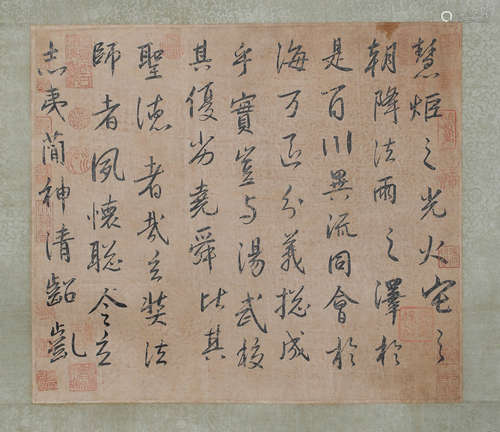 慧炬之光火宅之
朝降法雨之澤於
是百川異流同會於
海万區分義總成
乎實豈与湯武校
其優劣堯舜比其
聖德者哉玄奘法
師者夙懷聰令立
志夷簡神清齠齔